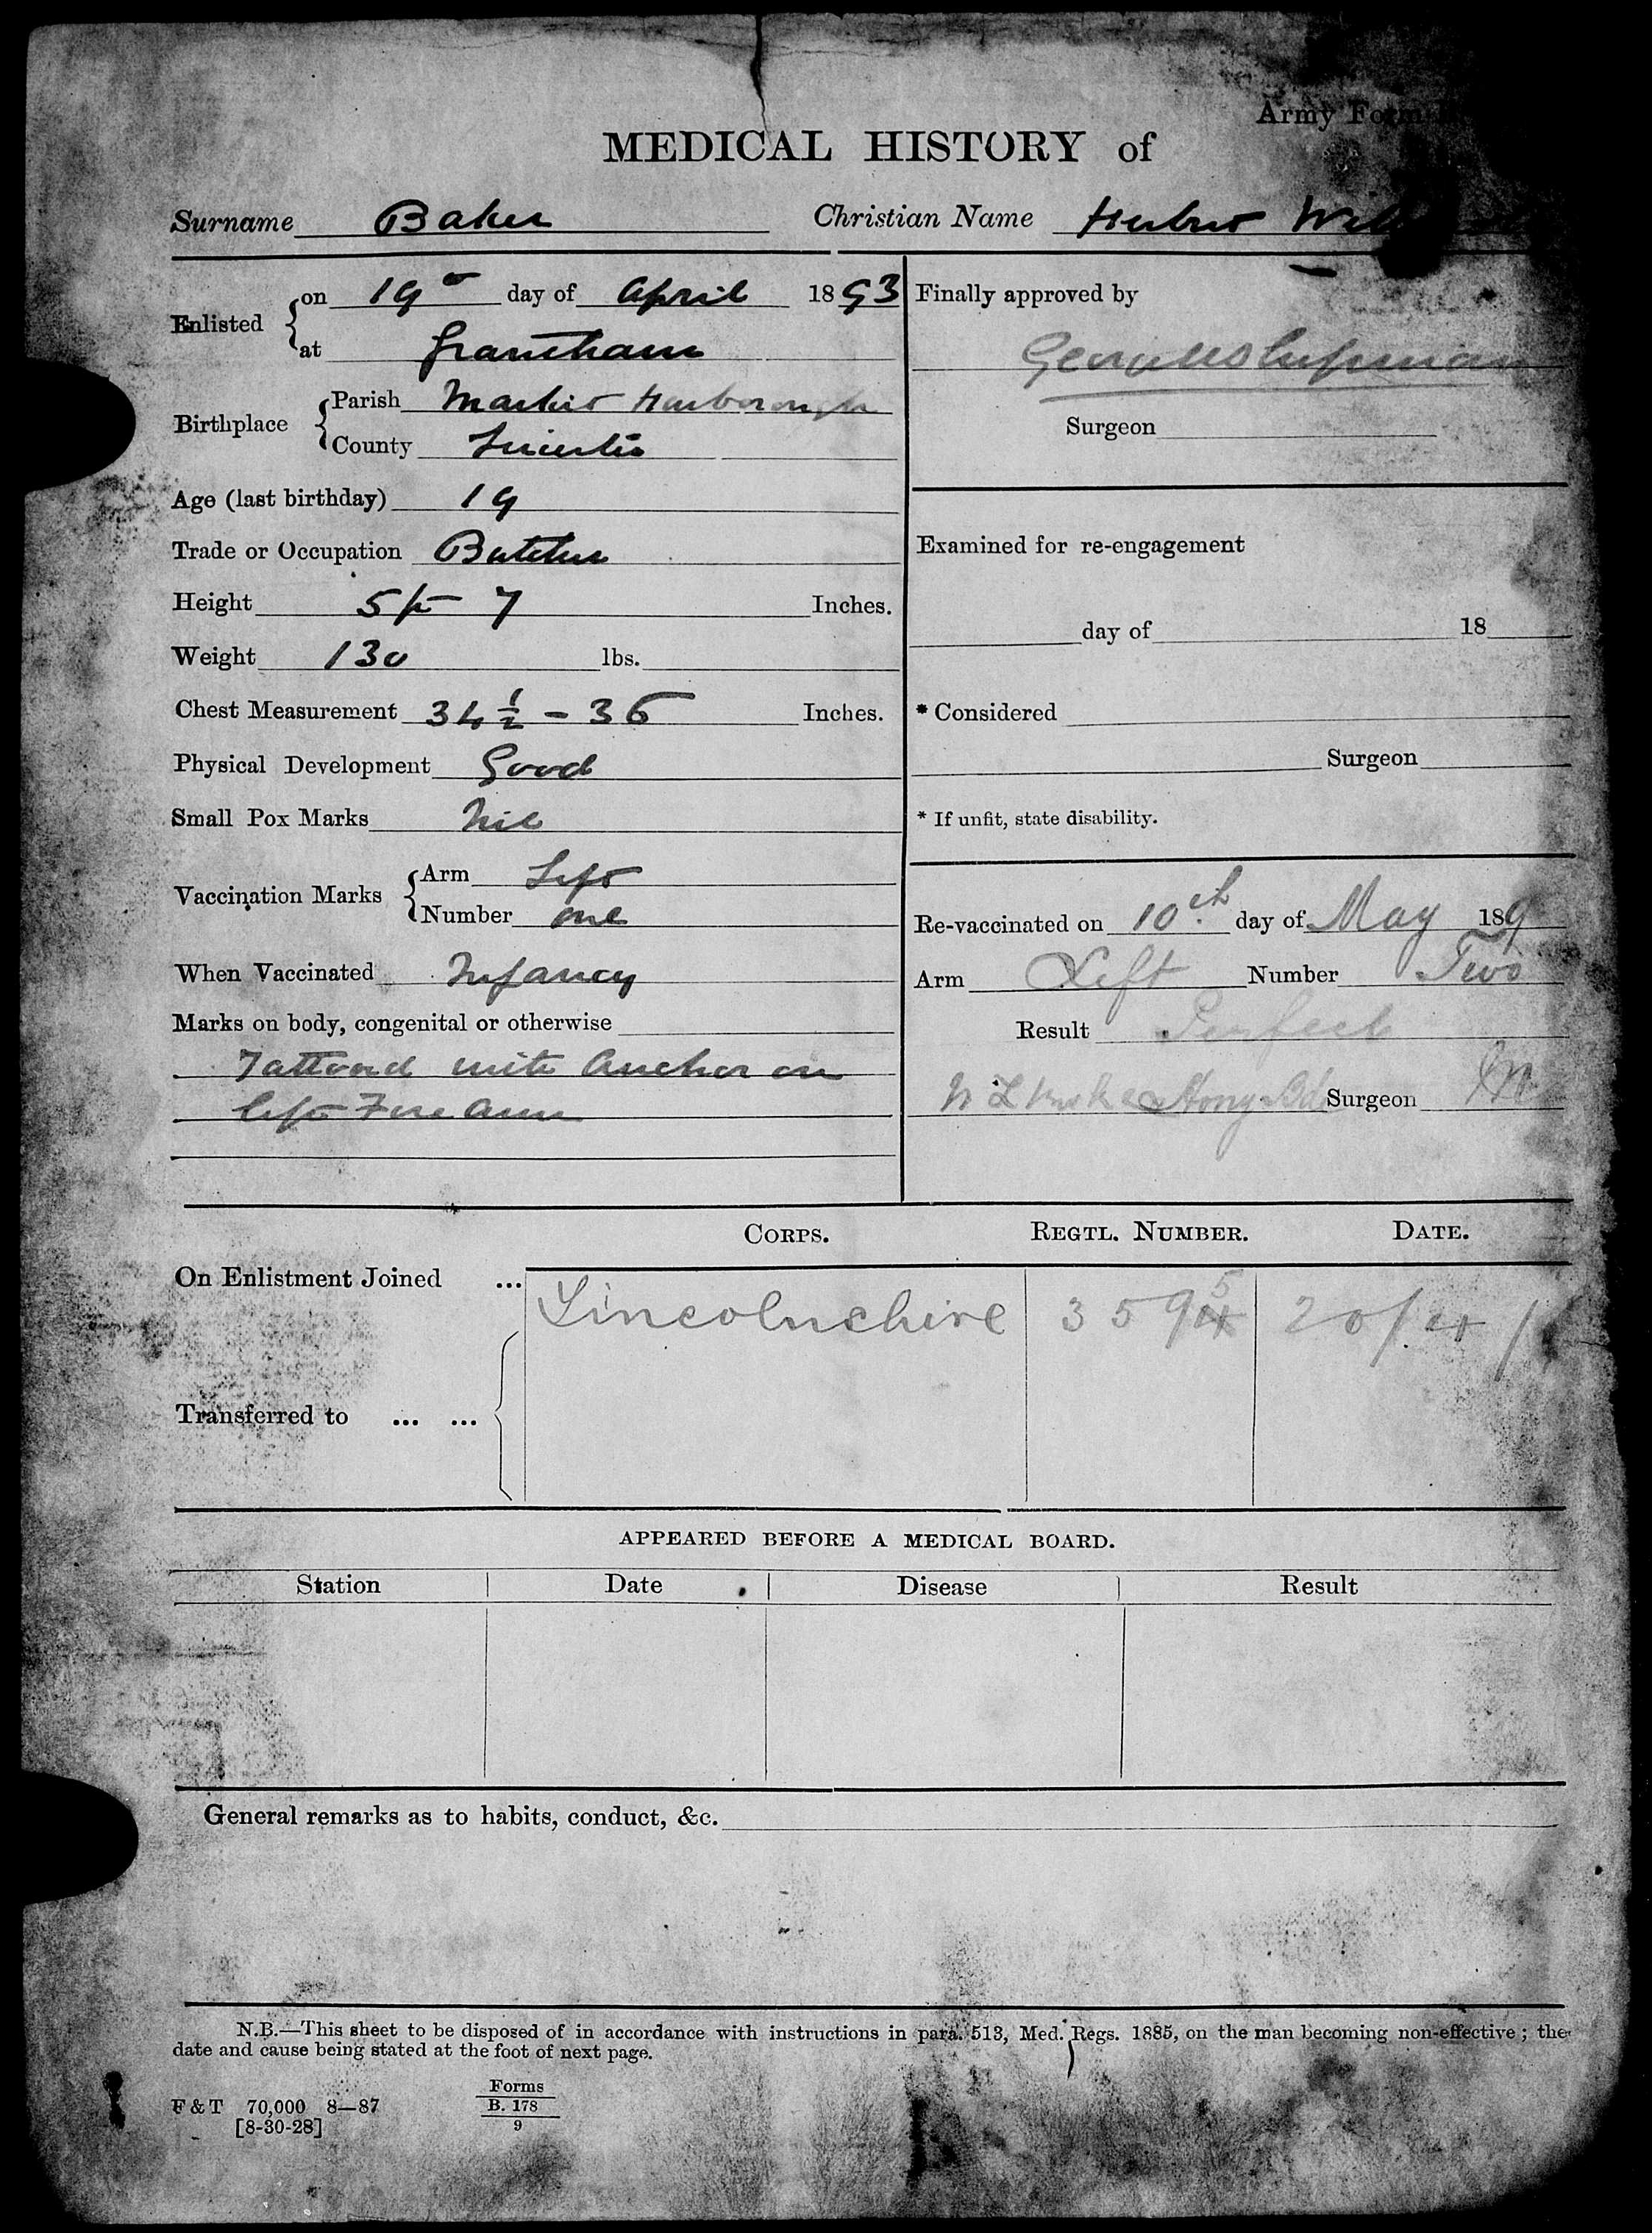 Army Form
MEDICAL HISTORY of
Surname Baker Christian Name Herbert
Enlisted on 19th day of April 1893
at Grantham
Birthplace Parish Market Harborough
County Leicester
Age (last birthday) 19
Trade or Occupation Butcher
Height 5 ft 7 Inches.
Weight 130 lbs.
Chest Measurement 34 1/2 - 36 Inches.
Physical Development Good
Small Pox Marks Nil
Vaccination Marks Arm Left
Number one
When Vaccinated Infancy
Marks on body, congenital or otherwise
Tattooed with Anchor on
left Fore Arm
Finally approved by
Surgeon
Examined for re-engagement
day of 18
* Considered
Surgeon
* If unfit, state disability.
Re-vaccinated on 10th day of May 189
Arm Left Number Two
Result Perfect
Surgeon
CORPS. REGTL. NUMBER. DATE.
On Enlistment Joined ... Lincolnshire 3595 20/4/
Transferred to ... ...
APPEARED BEFORE A MEDICAL BOARD.
Station Date Disease Result
General remarks as to habits, conduct, &c.
N.B.—This sheet to be disposed of in accordance with instructions in para. 513, Med. Regs. 1885, on the man becoming non-effective; the
date and cause being stated at the foot of next page.
F & T 70,000 8—87
[8-30-28]
Forms
B. 178
9